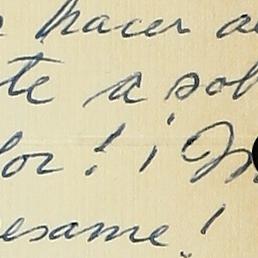 hacer a
te a sol
or! ¡
esame!